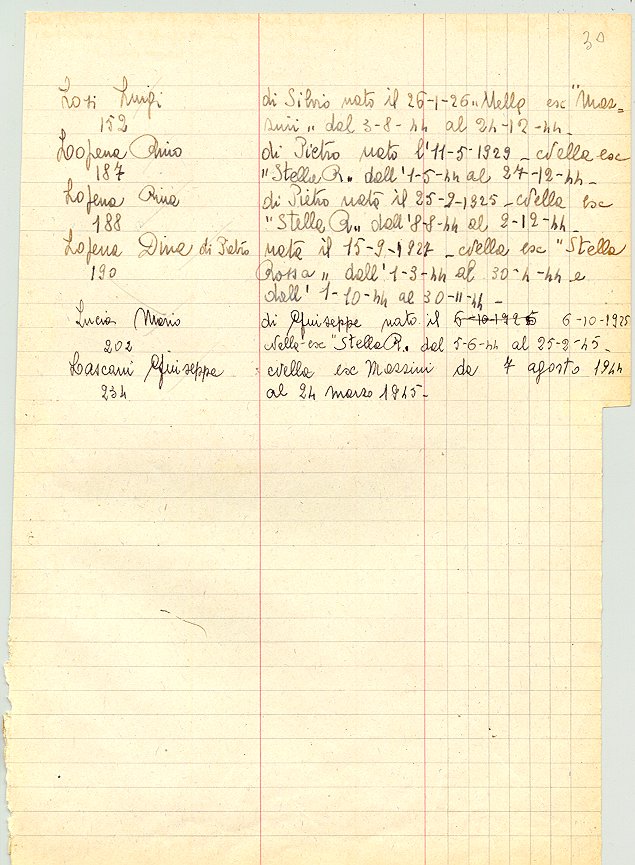 30
Losi Luigi di Silvio nato il 26-1-26 „ Nella ex "Maz=
152 zini „ dal 3-8-44 al 24-12-44-
Lofena Rino di Pietro nato l'11-5-1929 - Nella ex
187 "Stella R„ dall'1-5-44 al 27-12-44-
Lofena Rina di Pietro nata il 25-2-1925 - Nella ex
188 "Stella R„ dall'8-8-44 al 2-12-44-
Lofena Dina di Pietro nata il 15-9-1927 - Nella ex "Stella
190 Rossa „ dall'1-3-44 al 30-4-44 e
dall'1-10-44 al 30-11-44-
Lucia Mario di Giuseppe nato il 6-10-1925 6-10-1925
202 Nella ex "Stella R„ dal 5-6-44 al 25-2-45-
Lascani Giuseppe Nella ex Mazzini da 7 agosto 1944
234 al 24 marzo 1945-